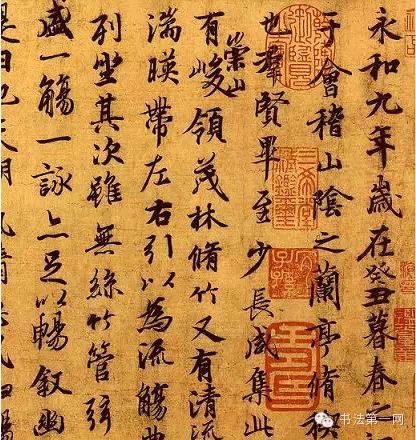 永和九年歲在癸丑暮春之
于會稽山陰之蘭亭脩
也羣賢畢至少長咸集此
有崇山峻領茂林脩竹又有清流
湍暎帶左右引以為流觴
列坐其次雖無絲竹管弦
盛一觴一詠亦足以暢敘幽
书法第一网